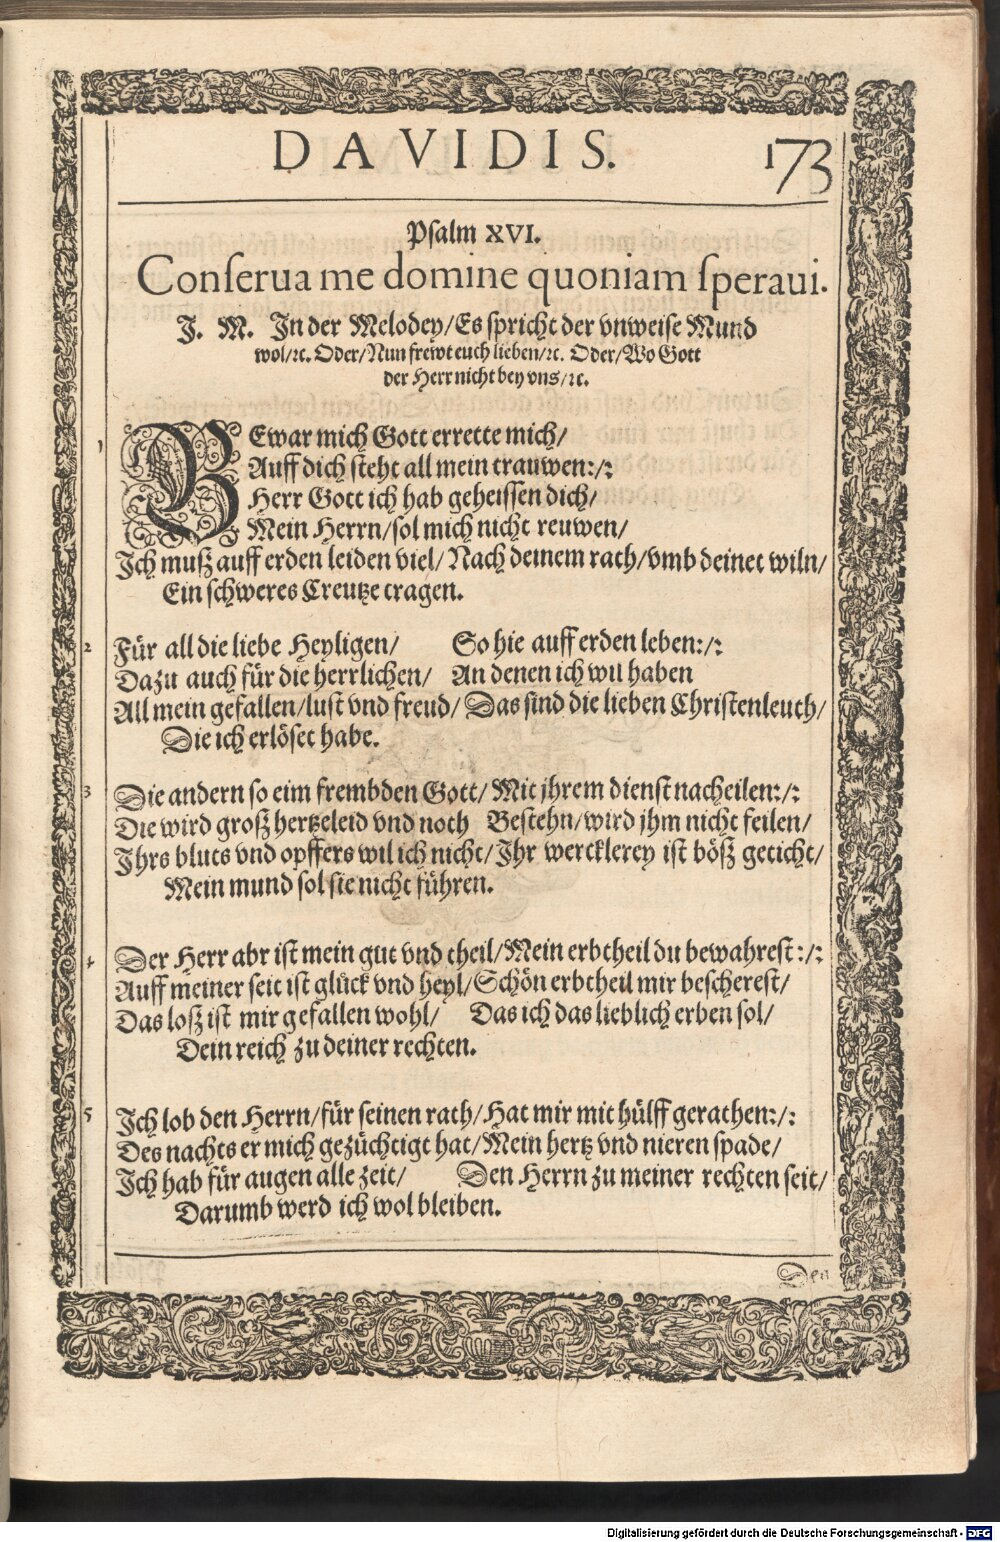 DAVIDIS. 173
Psalm XVI.
Conſerua me domine quoniam ſperaui.
J. M. In der Melodey/Es ſpricht der vnweiſe Mund
wol/ꝛc. Oder/Nun frewt euch lieben/ꝛc. Oder/Wo Gott
der Herr nicht bey vns/ꝛc.
1 BEwar mich Gott errette mich/
Auff dich ſteht all mein trauwen:/:
Herr Gott ich hab geheiſſen dich/
Mein Herrn/ſol mich nicht reuwen/
Ich muß auff erden leiden viel/ Nach deinem rath/vmb deinet wiln/
Ein ſchweres Creutze tragen.
2 Für all die liebe Heyligen/ So hie auff erden leben:/:
Dazu auch für die herrlichen/ An denen ich wil haben
All mein gefallen/luſt vnd freud/ Das ſind die lieben Chriſtenleuth/
Die ich erlöſet habe.
3 Die andern ſo eim frembden Gott/ Mit jhrem dienſt nacheilen:/:
Die wird groß hertzeleid vnd noth Beſtehn/wird jhm nicht feilen/
Ihrs bluts vnd opffers wil ich nicht/ Ihr wercklerey iſt böß geticht/
Mein mund ſol ſie nicht führen.
4 Der Herr abr iſt mein gut vnd theil/Mein erbtheil du bewahreſt:/:
Auff meiner ſeit iſt glück vnd heyl/Schön erbtheil mir beſchereſt/
Das loß iſt mir gefallen wohl/ Das ich das lieblich erben ſol/
Dein reich zu deiner rechten.
5 Ich lob den Herrn/für ſeinen rath/Hat mir mit hülff gerathen:/:
Des nachts er mich gezüchtigt hat/Mein hertz vnd nieren ſpade/
Ich hab für augen alle zeit/ Den Herrn zu meiner rechten ſeit/
Darumb werd ich wol bleiben.
Den
Digitalisierung gefördert durch die Deutsche Forschungsgemeinschaft - DFG